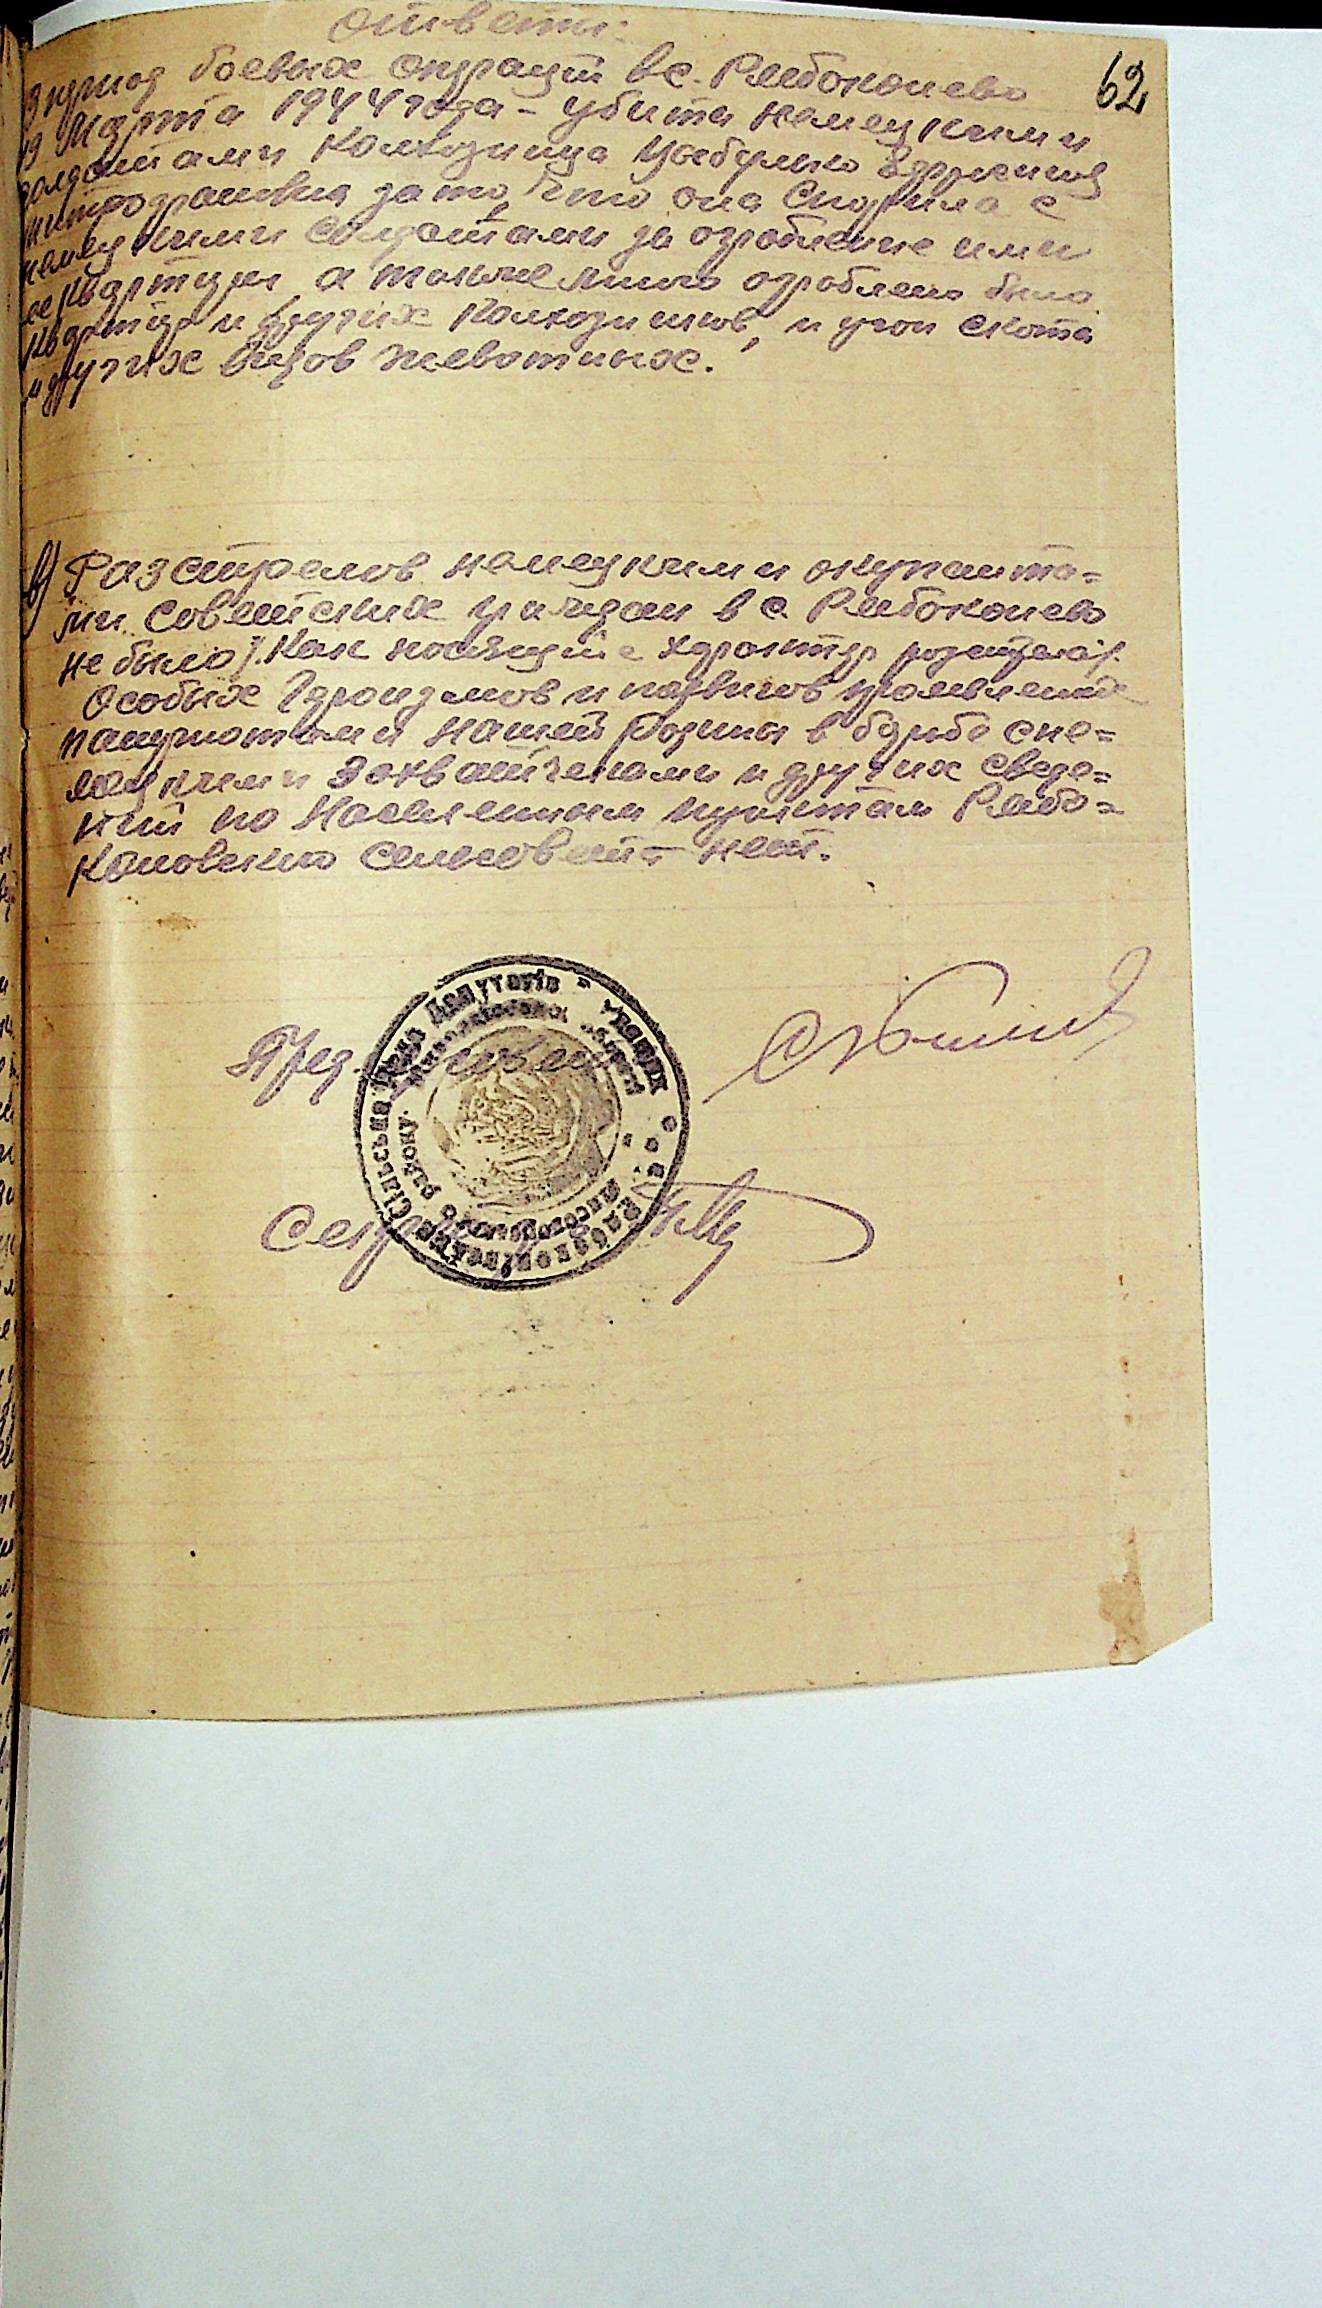 ответ:
62
В период боевых операций в с. Рябоконево
19 Марта 1944 года - убита немецкими
солдатами Колхозница Цыбулько Ефросиния
Митрофановна за то, что она Спорила с
немецкими солдатами за ограбление ими
ее квартиры, а также много ограблено было
квартир и других Колхозников, и угон скота
и других видов животных.
в) Разстрелов немецкими окупанта=
ми советских граждан в с. Рябоконево
не было /. Как носящие характер
Особых Героизмов и подвигов проявления
патриотами нашей Родины в борьбе с не=
мецкими захватчиками и других сведе=
ний по Населенным пунктам Рябо=
коновского сельсовета - нет.
Пред. с/совета
Секретарь
Сільська Рада Депутатів Района
району.